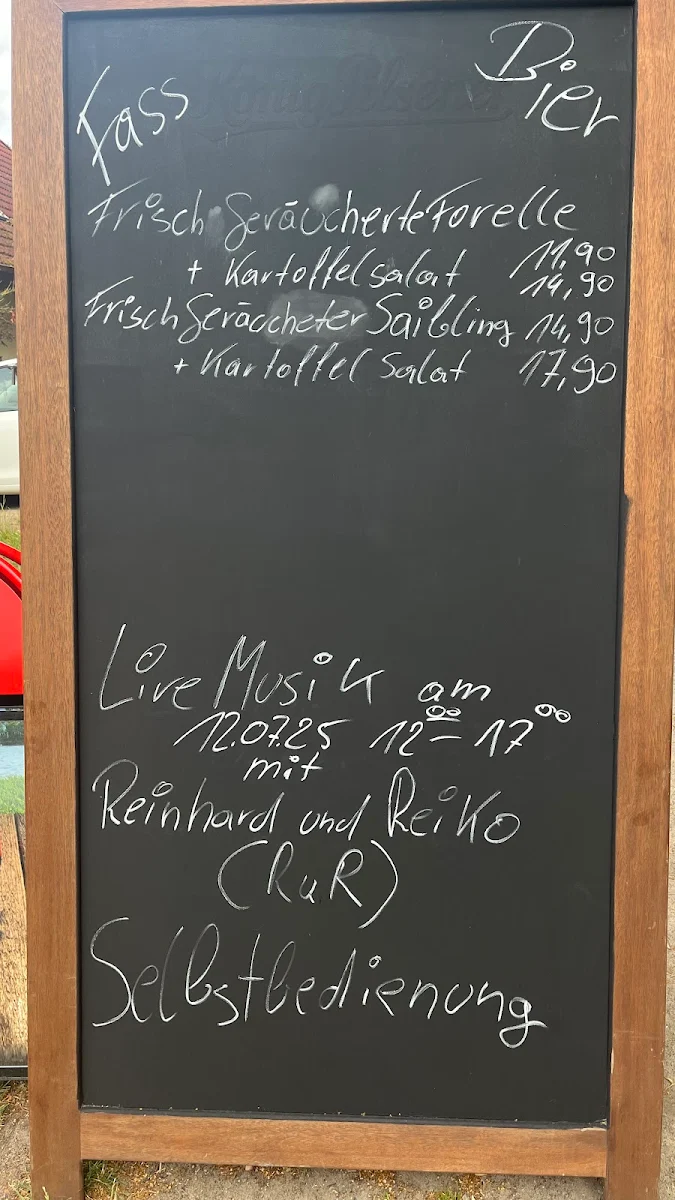 Fass Bier
Frisch Geräucherte Forelle 11,90
+ Kartoffelsalat 14,90
Frisch Geräucheter Saibling 14,90
+ Kartoffel Salat 17,90
Live Musik am
12.07.25 12⁰⁰ - 17⁰⁰
mit
Reinhard und Reiko
(RuR)
Selbstbedienung